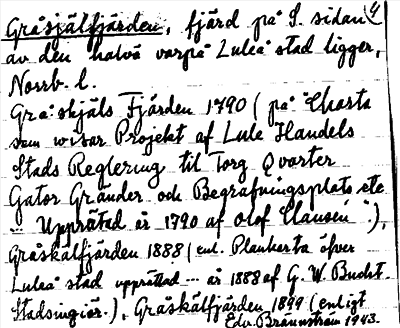 Gråsjälfjärden, fjärd på S. sidan
av den halvö varpå Luleå stad ligger,
Norrb. l.
Grå:skjäls Fjärden 1790 (på "Charta
som wisar Projekt af Lule Handels
Stads Reglering til Torg Qvarter
Gator Gränder och Begrafningsplats etc
... Upprättad år 1790 af Olof Clausén"),
Gråskälfjärden 1888 (enl. Plankarta öfver
Luleå stad upprättad ... år 1888 af G. W. Bucht.
Stadsingiör.), Gråskälfjärden 1899 (enligt
Edv. Brännström 1943.